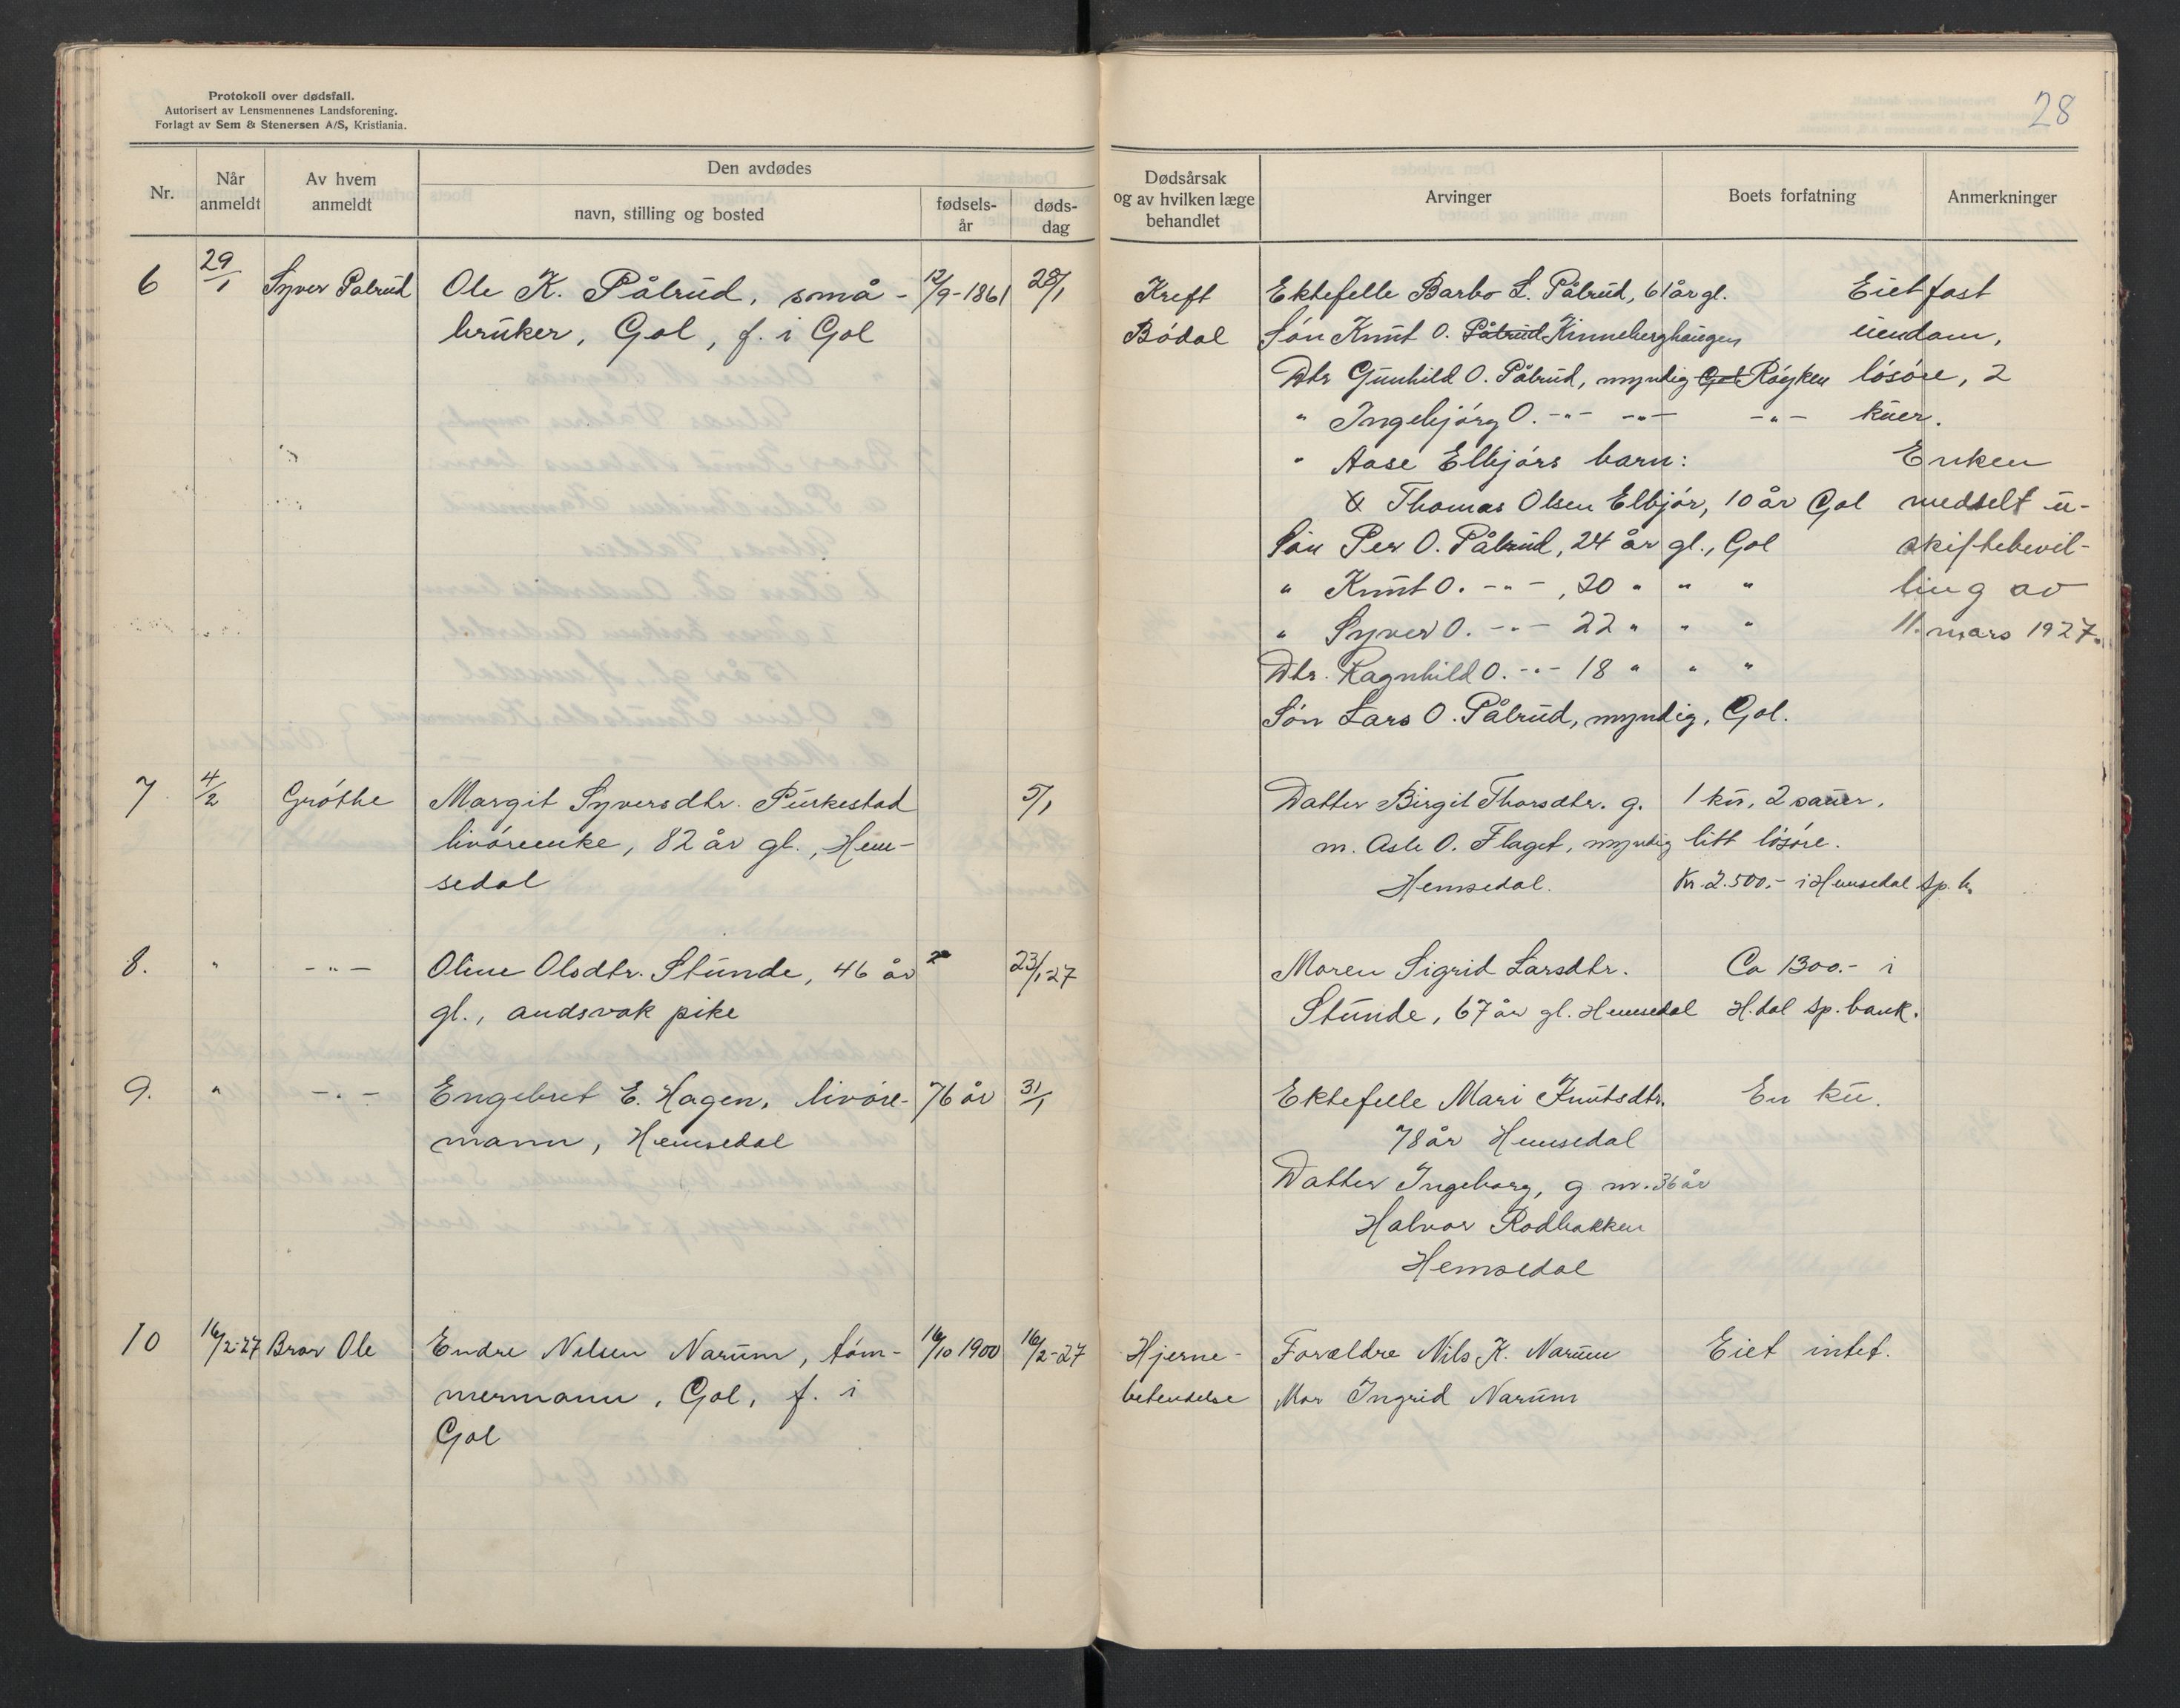 Protokoll over dødsfall.
Autorisert av Lensmennenes Landsforening.
Forlagt av Sem & Stenersen A/S, Kristiania.
28
Nr.
Når anmeldt
Av hvem anmeldt
Den avdødes
navn, stilling og bosted
fødsels-år
døds-dag
Dødsårsak og av hvilken læge behandlet
Arvinger
Boets forfatning
Anmerkninger
6 29/1 Syver Pålrud Ole K. Pålrud, små- 12/9-1861 28/1 Kreft Ektefelle Barbo L. Pålrud, 61 år gl. Eiet fast
bruker, Gol, f. i Gol Bødal Søn Knut O. Pålrud Kinneberghaugen eiendom,
Dtr Gunhild O. Pålrud, myndig Gol Røyken løsøre, 2
" Ingebjørg O. -"- -"- -"- kuer.
" Aase Elbjørs barn: Enken
Thomas Olsen Elbjør, 10 år Gol meddelt u-
Søn Per O. Pålrud, 24 år gl., Gol skiftebevil-
" Knut O. -"-, 20 " " " ling av
" Syver O. -"- 22 " " " 11. mars 1927.
Dtr. Ragnhild O. -"- 18 " " "
Søn Lars O. Pålrud, myndig, Gol.
7 4/2 Grøthe Margit Syversdtr. Purkestad 5/1 Datter Birgit Thorsdtr. g. 1 ku, 2 sauer,
livøreenke, 82 år gl., Hem- m. Asle O. Flaget, myndig litt løsøre.
sedal Hemsedal. Kr. 2.500.- i Hemsedal Sp. b.
8. " -"- Oline Olsdtr. Stunde, 46 år 23/1-27 Moren Sigrid Larsdtr. Ca 1300.- i
gl., andsvak pike Stunde, 67 år gl. Hemsedal H.dal Sp. bank.
9. " -"- Engebret E. Hagen, livøre- 76 år 31/1 Ektefelle Mari Knutsdtr. En ku.
mann, Hemsedal 78 år Hemsedal
Datter Ingeborg, g m. 36 år
Halvor Rodbakken
Hemsedal
10 16/2-27 Bror Ole Endre Nilsen Narum, tøm- 16/10 1900 16/2-27 Hjerne- Forældre Nils K. Narum Eiet intet.
mermann, Gol, f. i betendelse Mor Ingrid Narum
Gol